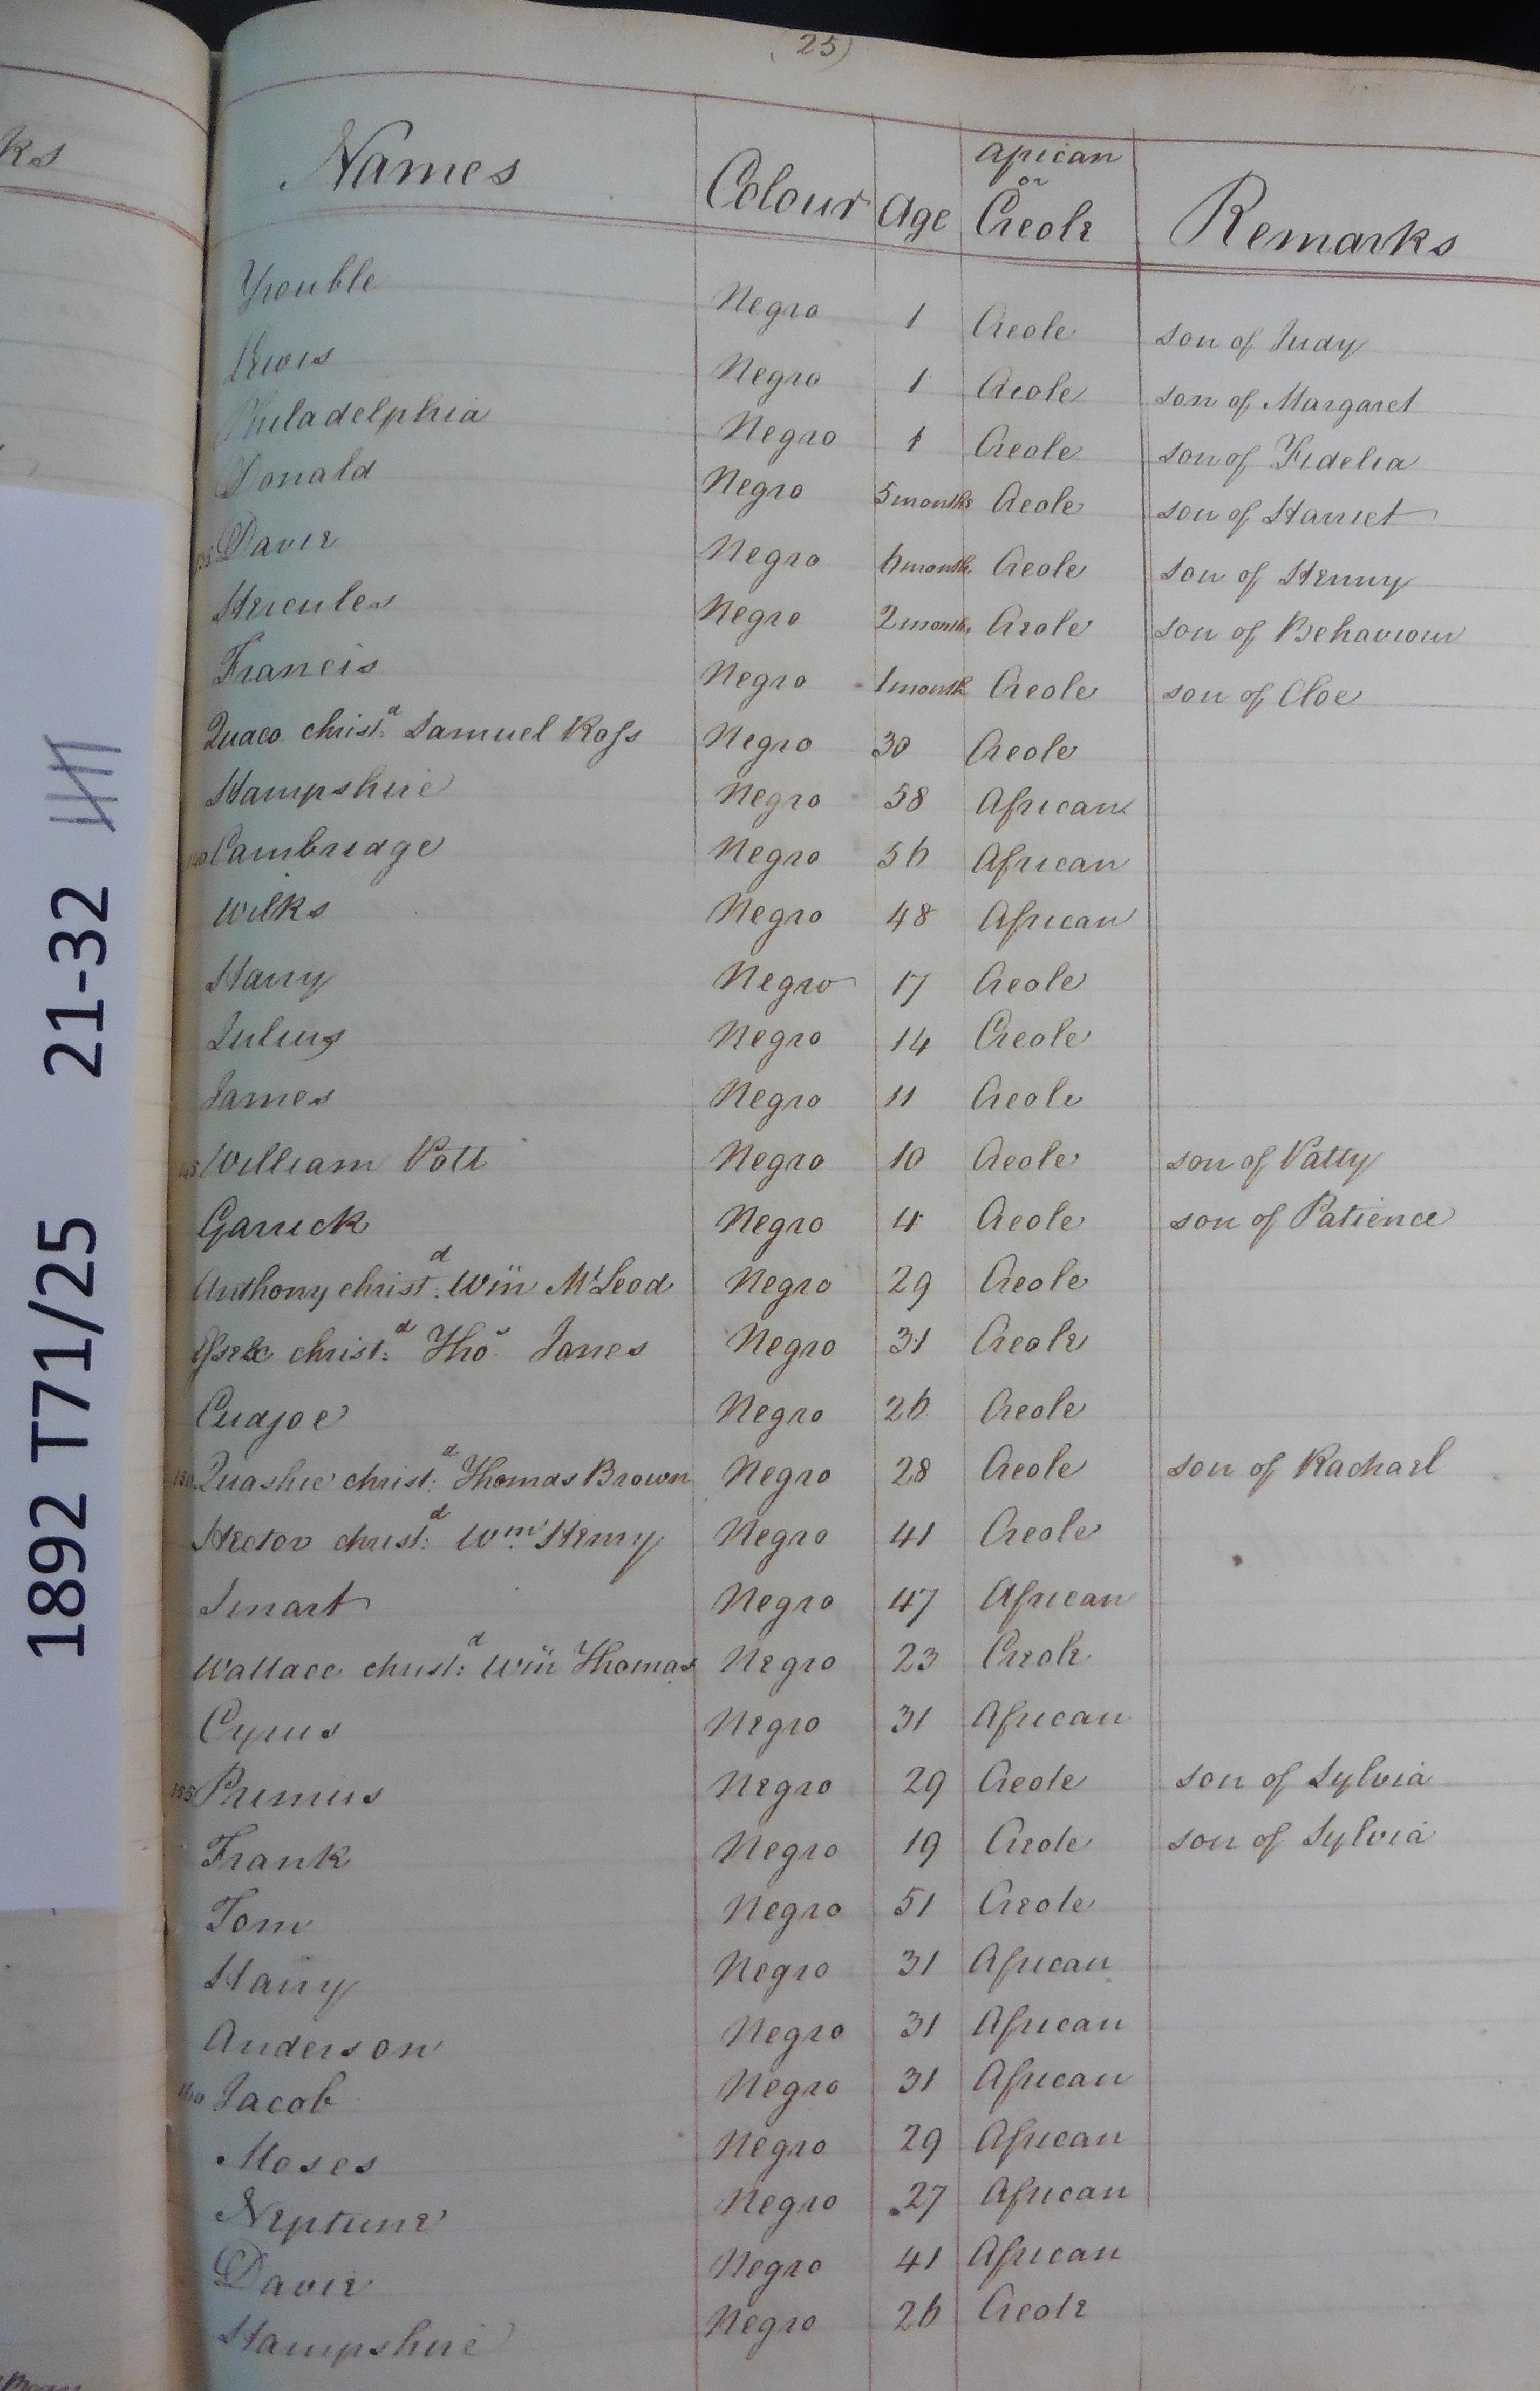 25)
ks
Names Colour Age African or Creole Remarks
Trouble Negro 1 Creole son of Judy
Lewis Negro 1 Creole son of Margaret
Philadelphia Negro 1 Creole son of Fidelia
Donald Negro 5 months Creole son of Harriet
135 Davie Negro 6 months Creole son of Henny
Hercules Negro 2 months Creole son of Behaviour
Francis Negro 1 month Creole son of Cloe
Quaco christ.d Samuel Ross Negro 30 Creole
Hampshire Negro 58 African
140 Cambridge Negro 56 African
Wilks Negro 48 African
Harry Negro 17 Creole
Julius Negro 14 Creole
James Negro 11 Creole
145 William Pott Negro 10 Creole son of Patty
Garrick Negro 4 Creole son of Patience
Anthony christ.d Wm McLeod Negro 29 Creole
Essex christ.d Thos Jones Negro 31 Creole
Cudjoe Negro 26 Creole
150 Quashie christ.d Thomas Brown Negro 28 Creole son of Rachael
Hector christ.d Wm Henry Negro 41 Creole
Smart Negro 47 African
Wallace christ.d Wm Thomas Negro 23 Creole
Cyrus Negro 31 African
155 Primus Negro 29 Creole son of Sylvia
Frank Negro 19 Creole son of Sylvia
Tom Negro 51 Creole
Harry Negro 31 African
Anderson Negro 31 African
160 Jacob Negro 31 African
Moses Negro 29 African
Neptune Negro 27 African
Davie Negro 41 African
Hampshire Negro 26 Creole
1892 T71/25 21-32